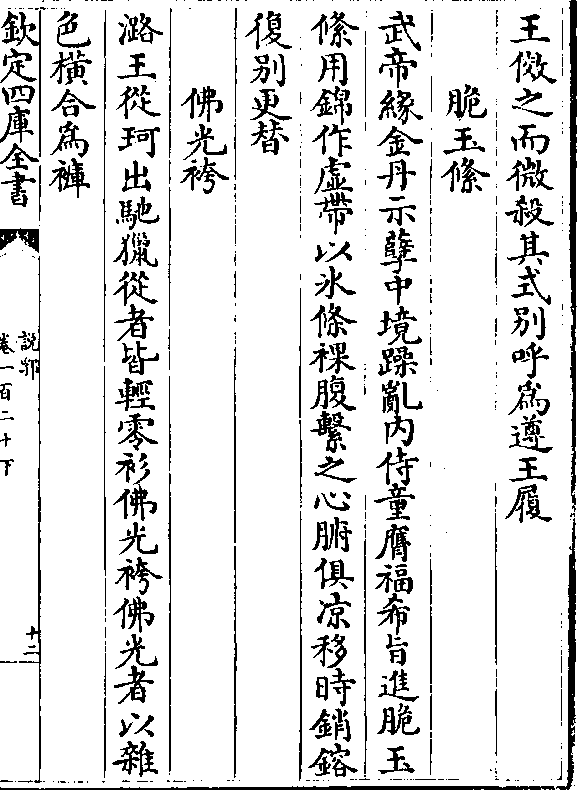 王儌之而微殺其式別呼爲遵王履
脆玉絛
武帝緣金丹示孽中境躁亂内侍童膺福希旨進脆玉
絛用錦作虚帶以氷條裸腹繫之心腑俱凉移時銷鎔
復別更替
佛光袴
潞王從珂出馳獵從者皆輕零衫佛光袴佛光者以雜
色橫合爲褲
欽定四庫全書
說郛
卷一百二十下
十二